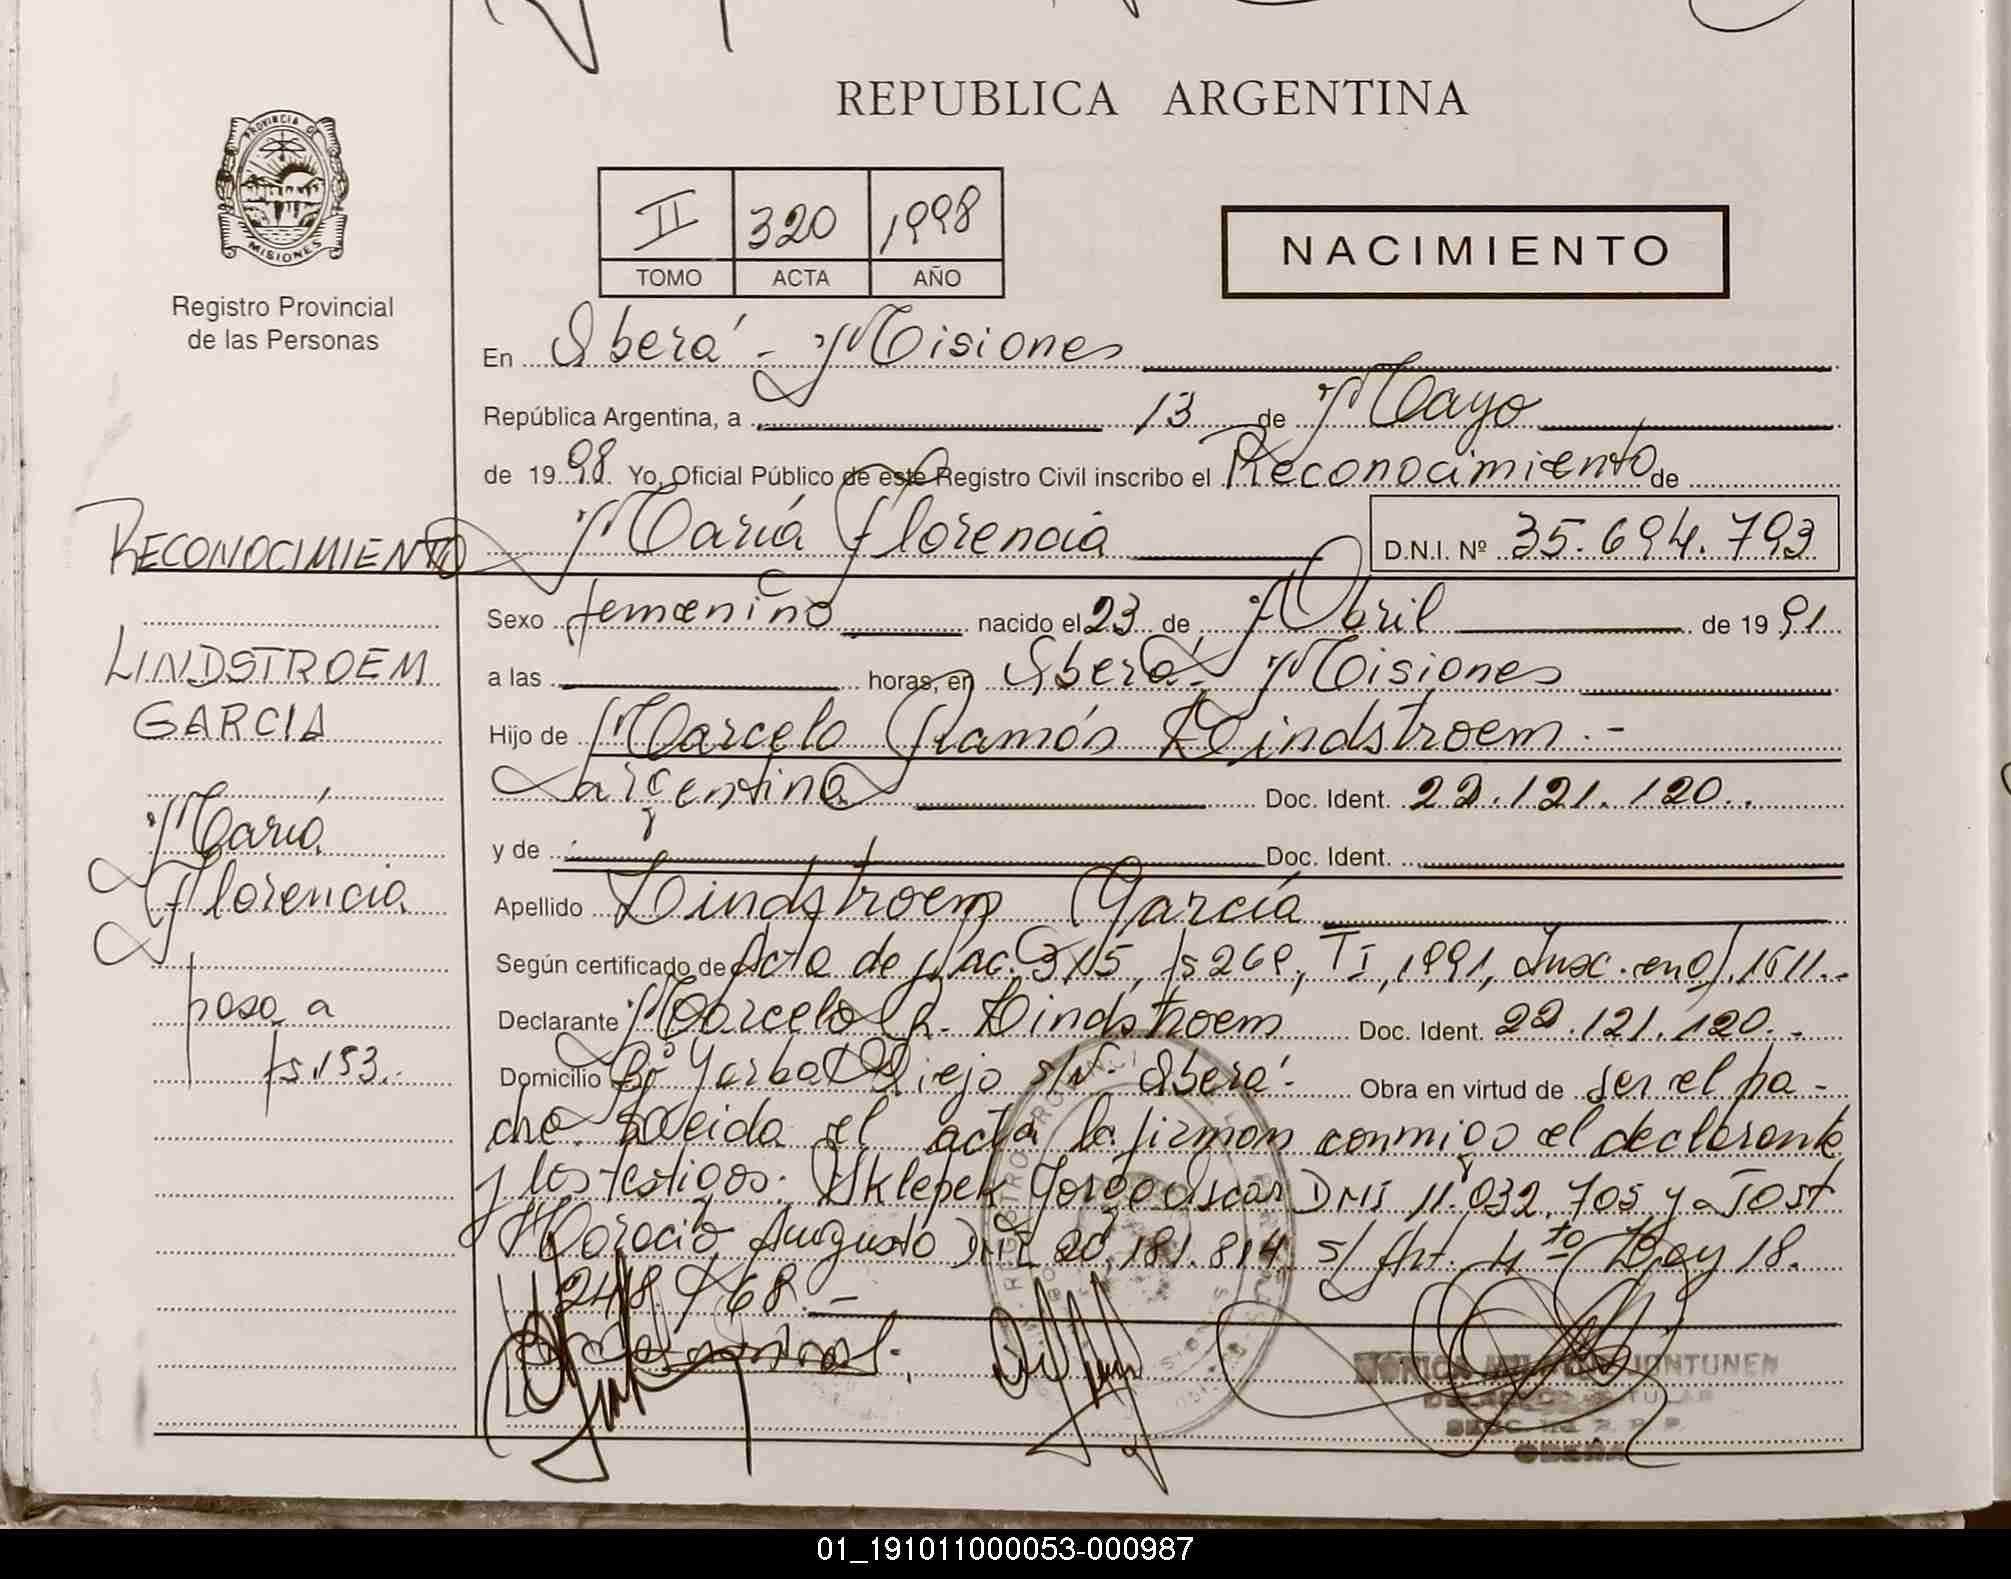 REPUBLICA ARGENTINA
PROVINCIA DE
MISIONES
Registro Provincial
de las Personas
II 320 1998
TOMO ACTA AÑO
NACIMIENTO
En Oberá - Misiones
República Argentina, a 13 de Mayo
de 1998 Yo, Oficial Público de este Registro Civil inscribo el Reconocimiento de
RECONOCIMIENTO
María Florencia
D.N.I. Nº 35.694.793
Sexo femenino nacido el 23 de Abril de 1991
LINDSTROEM
GARCIA
María
Florencia
pasa a
fs. 153.-
a las horas, en Oberá - Misiones
Hijo de Marcelo Ramón Lindstroem.-
argentina Doc. Ident. 22.121.120.
y de Doc. Ident.
Apellido Lindstroem García
Según certificado de Acta de Nac. 315, fs 269, TI, 1991,
Declarante Marcelo R. Lindstroem Doc. Ident. 22.121.120.-
Domicilio Bº Yerbal Viejo s/Nº Oberá.- Obra en virtud de ser el pa-
dre. Leída el acta la firman conmigo el declarante
y los testigos: Sklepek Jorge Oscar DNI 11.032.705 y Tost
Horacio Augusto DNI 20.181.814 s/Art. 4to Ley 18.
248/68.-
OBERA
01_191011000053-000987